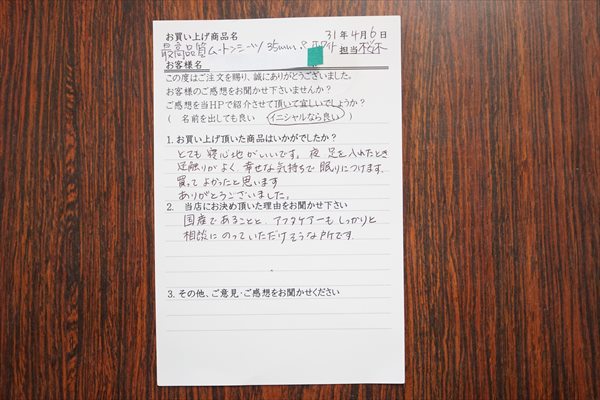 お買い上げ商品名 31年4月6日
最高品質ムートンシーツ/35mm ホワイト 担当
お客様名
この度はご注文を賜り、誠にありがとうございました。
お客様のご感想をお聞かせ下さいませんか？
ご感想を当HPで紹介させて頂いて宜しいでしょうか？
( 名前を出しても良い イニシャルなら良い )
1. お買い上げ頂いた商品はいかがでしたか？
とても寝心地がいいです。夜 足を入れたとき
足触りがよく 幸せな気持ちで 眠りにつけます。
買って よかったと思います
ありがとうございました。
2. 当店にお決め頂いた理由をお聞かせ下さい
国産であることと、アフタケアーも しっかりと
相談に のっていただけそうな所です。
3. その他、ご意見・ご感想をお聞かせください